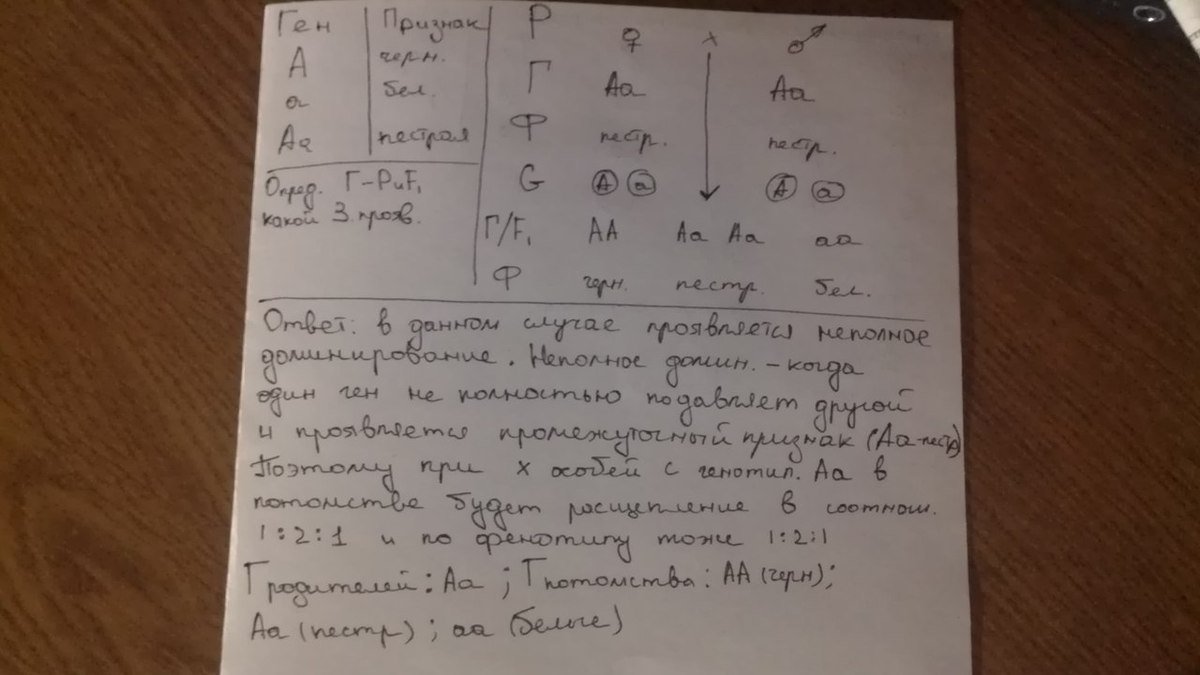 Ген Признак
А черн.
а бел.
Аа пестрая
Опред. Г-РиF₁
какой З. прояв.
Р ♀ х ♂
Г Аа Аа
Ф пестр. пестр.
G А а А а
Г/F₁ АА Аа Аа аа
Ф черн. пестр. бел.
Ответ: в данном случае проявляется неполное
доминирование. Неполное домин. – когда
один ген не полностью подавляет другой
и проявляется промежуточный признак (Аа-пестр)
Поэтому при х особей с генотип. Аа в
потомстве будет расщепление в соотнош.
1:2:1 и по фенотипу тоже 1:2:1
Г родителей: Аа ; Г потомства: АА (черн);
Аа (пестр) ; аа (белые)